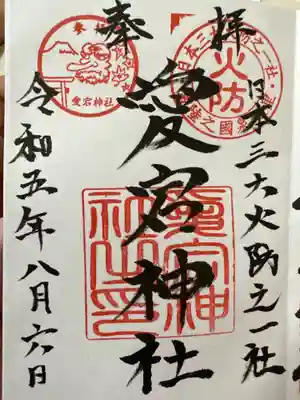 奉拝
日本三大火防之一社
愛宕神社
令和五年八月六日
火防
参拝
愛宕神社
愛宕神社之印